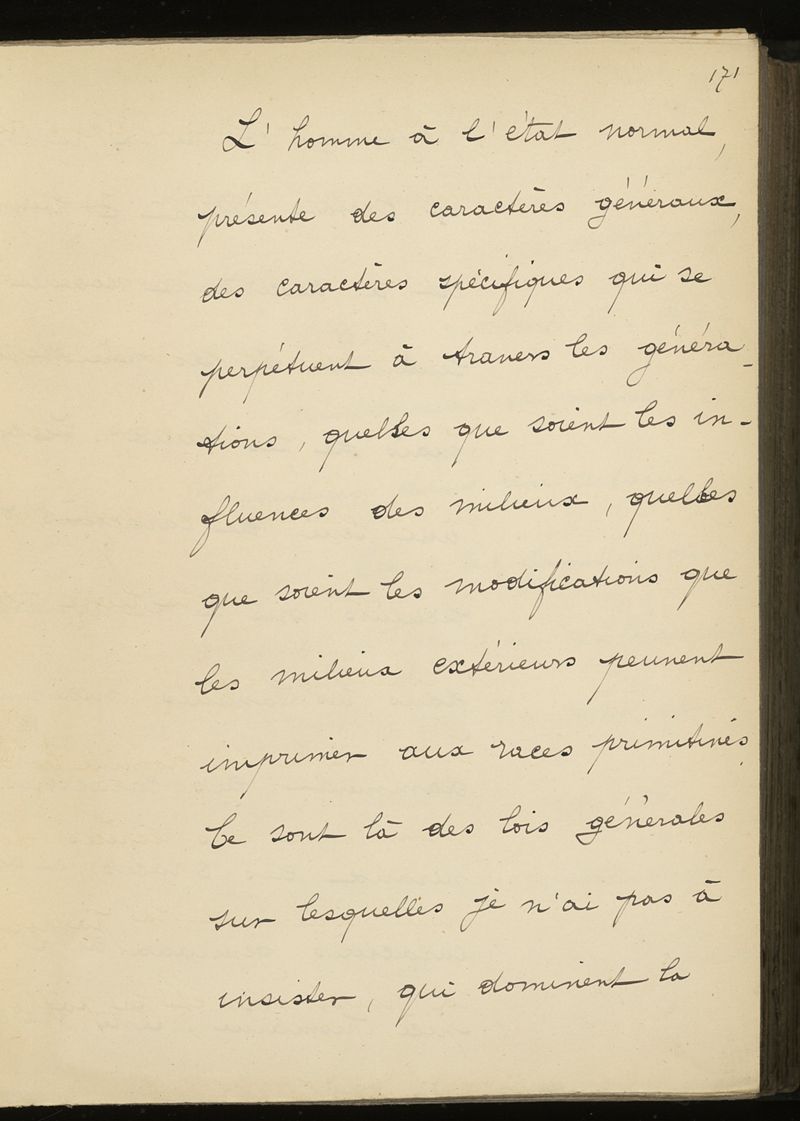 171
L'homme à l'état normal,
présente des caractères généraux,
des caractères spécifiques qui se
perpétuent à travers les généra-
tions, quelles que soient les in-
fluences des milieux, quelles
que soient les modifications que
les milieux extérieurs peuvent
imprimer aux races primitives.
Ce sont là des lois générales
sur lesquelles je n'ai pas à
insister, qui dominent la